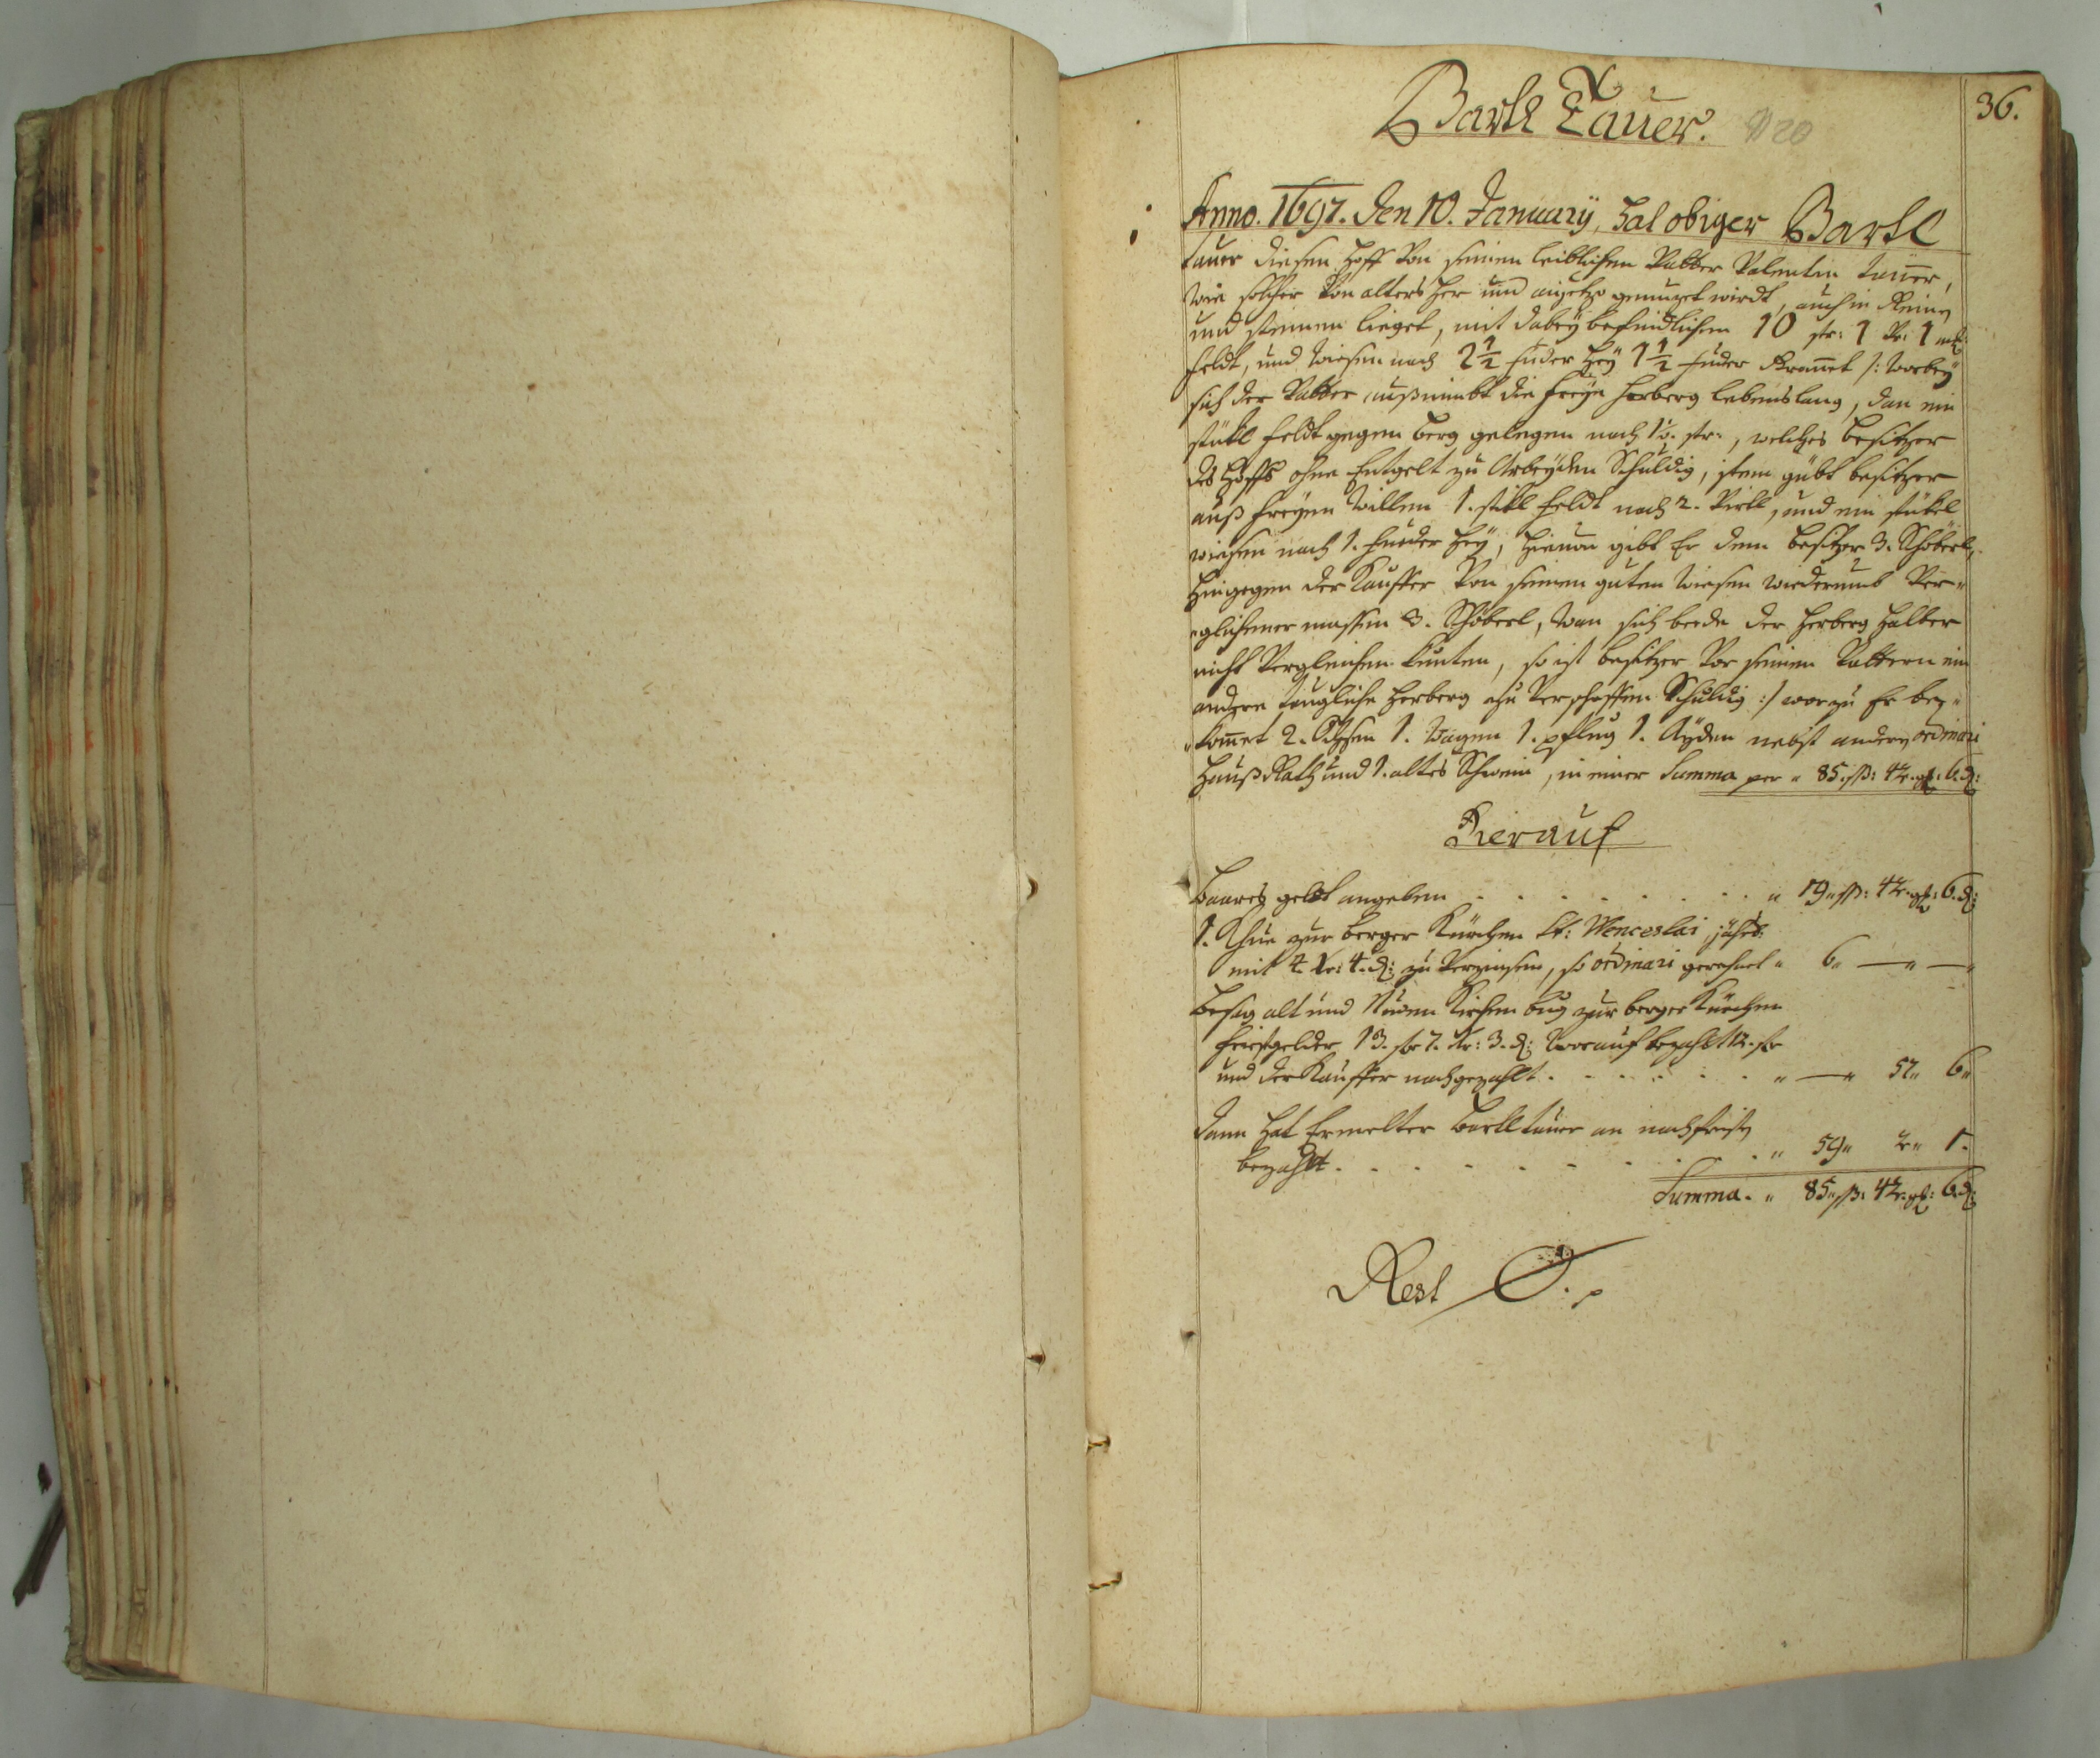 36.
Bartl Tauer. N 20
Anno. 1697. den 10. January, hat obiger Bartl
Tauer diesen Hoff von seinen leiblichen Vatter Valentin Tauer,
wie solcher von alters her und anjetzo genuzet wirdt, auch in Reinen
und steinen lieget, mit dabey befindlichen 10 str: 1 V: 1
Feldt, und Wiesen nach 2½ fuder Hey 1½ fuder Kromet /: worbey
sich der Vatter außnimbt die freye Herberg lebenslang, dan ein
stükl feldt gegen Berg gelegen nach 1½. str:, welches besitzer
des Hoffs ohne Entgelt zu Arbeyden Schuldig, item gübt besitzer
auß freyen Willen 1. stükl feldt nach 2. Virtl, und ein stükel
wiesen nach 1. fueder Hey, hievon gibt Er dem besitzer 3. Schöberl,
hingegen der Kauffer von seinen guten Wiesen wiederumb Ver-
glichener massen 3. Schöberl, wan sich beede der Herberg halber
nicht Vergleichen kunten, so ist besitzer vor seinen Vattern ein
andere taugliche Herberg zu Verschaffen Schuldig :/ worzu Er bey-
komet 2. Ochsen 1. Wagen 1. pflug 1. Ayden nebst andern ordinari
Hauß Rath und 1. altes Schwein, in einer Summa per " 85. ßß: 42. gl: 6. d:
Hierauf
Baares geldt angeben . . . . . . . . " 19 " ßß: 42. gl: 6. d:
1. Khue zur Berger Kürchen St: Wenceslai jährl:
mit 4 kr: 4. d: zu Verzinsen, so ordinari gerechnet " 6 " — " — "
Besag alt und Neuen Kirchen buch zur berger Kürchen
fristgelder 13. ßr 7. kr: 3. d: Worauf bezahlt 12. ßr
und der Kauffer nachgezahlt . . . . . . " — " 57 " 6 "
Dann hat Ermelter Bartl Tauer an nachfristen
bezahlt . . . . . . . . " 59 " 2 " 1.
Summa. " 85 " ßß: 42. gl: 6. d:
Rest O.